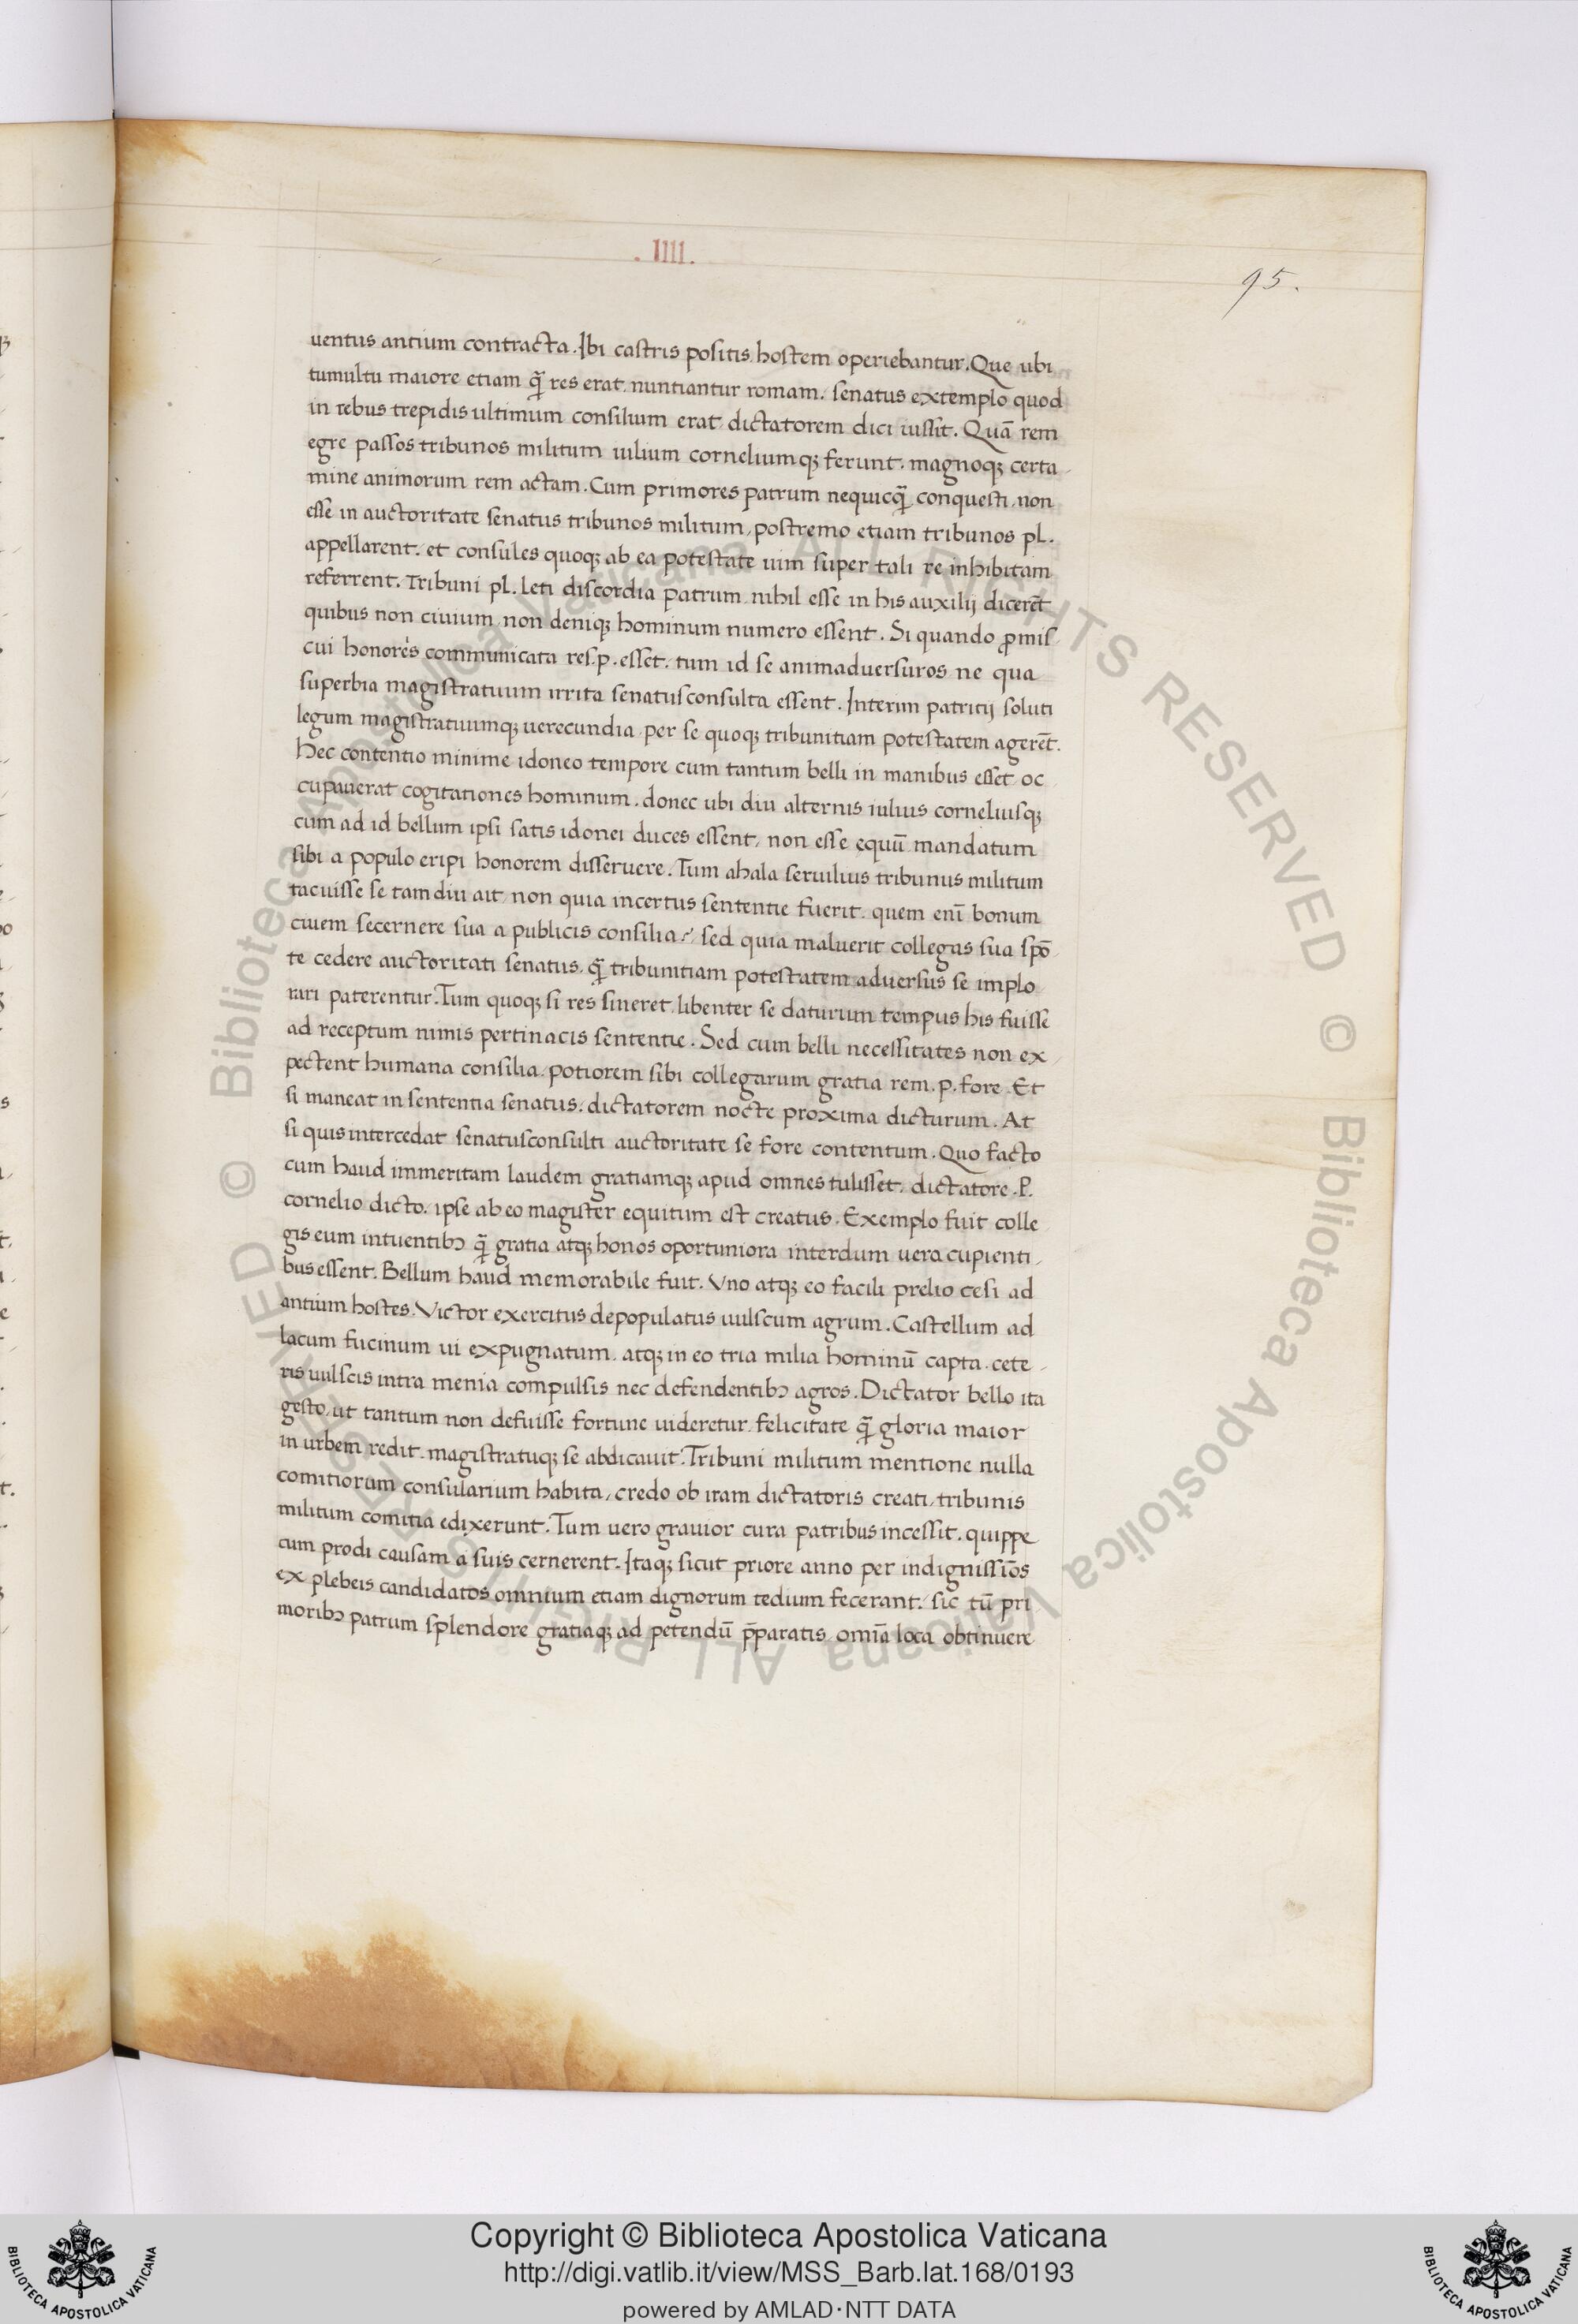 .IIII.
95.
uentus antium contracta. Ibi castris positis hostem operiebantur. Que ubi
tumultu maiore etiam q̄ res erat nuntiantur romam. senatus extemplo quod
in rebus trepidis ultimum consilium erat dictatorem dici iussit. Quā rem
egre passos tribunos militum iulium corneliumq; ferunt. magnoq; certa
mine animorum rem actam. Cum primores patrum nequicq̄ conquesti, non
esse in auctoritate senatus tribunos militum, postremo etiam tribunos pl.
appellarent. et consules quoq; ab ea potestate uim super tali re inhibitam
referrent. Tribuni pl. leti discordia patrum nihil esse in his auxilij dicerēt
quibus non ciuium non deniq; hominum numero essent. Si quando ꝓmis
cui honorès communicata res.p. esset. tum id se animaduersuros ne qua
superbia magistratuum irrita senatusconsulta essent. Interim patritij soluti
legum magistratuumq; uerecundia per se quoq; tribunitiam potestatem agerēt.
Hec contentio minime idoneo tempore cum tantum belli in manibus esset oc
cupauerat cogitationes hominum. donec ubi diu alternis iulius corneliusq;
cum ad id bellum ipsi satis idonei duces essent, non esse equū mandatum
sibi a populo eripi honorem disseruere. Tum ahala seruilius tribunus militum
tacuisse se tamdiu ait, non quia incertus sententie fuerit. quem enī bonum
ciuem secernere sua a publicis consilia? sed quia maluerit collegas sua spō
te cedere auctoritati senatus. q̄ tribunitiam potestatem aduersus se implo
rari paterentur. Tum quoq; si res sineret libenter se daturum tempus his fuisse
ad receptum nimis pertinacis sententie. Sed cum belli necessitates non ex
pectent humana consilia. potiorem sibi collegarum gratia rem.p. fore. Et
si maneat in sententia senatus. dictatorem nocte proxima dicturum. At
si quis intercedat senatusconsulti auctoritate se fore contentum. Quo facto
cum haud immeritam laudem gratiamq; apud omnes tulisset. dictatore .P.
cornelio dicto. ipse ab eo magister equitum est creatus. Exemplo fuit colle
gis eum intuentibꝰ q̄ gratia atq; honos oportuniora interdum uera cupienti
bus essent. Bellum haud memorabile fuit. Vno atq; eo facili prelio cesi ad
antium hostes. Victor exercitus depopulatus uulscum agrum. Castellum ad
lacum fucinum ui expugnatum. atq; in eo tria milia hominū capta. cete
ris uulscis intra menia compulsis nec defendentibꝰ agros. Dictator bello ita
gesto, ut tantum non defuisse fortune uideretur. felicitate q̄ gloria maior
in urbem redit. magistratuq; se abdicauit. Tribuni militum mentione nulla
comitiorum consularium habita, credo ob iram dictatoris creati, tribunis
militum comitia edixerunt. Tum uero grauior cura patribus incessit. quippe
cum prodi causam a suis cernerent. Itaq; sicut priore anno per indignissiōs
ex plebeis candidatos omnium etiam dignorum tedium fecerant. sic tū pri
moribꝰ patrum splendore gratiaq; ad petendū p̄paratis omīa loca obtinuere
© Biblioteca Apostolica Vaticana ALL RIGHTS RESERVED © Biblioteca Apostolica Vaticana ALL RIGHTS RESERVED
Copyright © Biblioteca Apostolica Vaticana
http://digi.vatlib.it/view/MSS_Barb.lat.168/0193
powered by AMLAD·NTT DATA
BIBLIOTECA APOSTOLICA VATICANA
BIBLIOTECA APOSTOLICA VATICANA